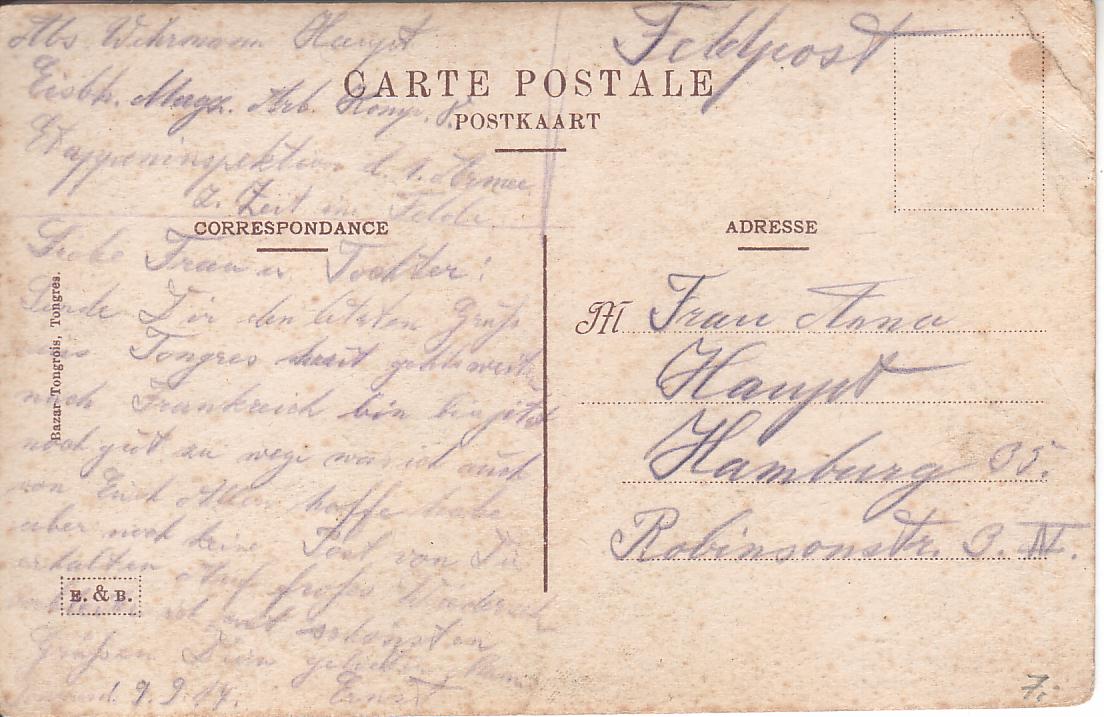 Abs Wehrmann Haupt
Eisbh. Magz. Arb. Komp. 8.
Etappeninspektion d. 1. Armee
z. Zeit im Felde
Feldpost
CARTE POSTALE
POSTKAART
CORRESPONDANCE
ADRESSE
Liebe Frau u. Tochter!
Sende Dir den letzten Gruß
aus Tongres heut geht weiter
nach Frankreich bin bis jetzt
noch gut zu wege was ich auch
von Euch Allen hoffe habe
aber noch keine Post von Dir
erhalten Auf frohes Wiedersehn
ich mit schönsten
Grüßen Dein geliebter Mann
9.9.14. Ernst
Bazar Tongrois, Tongres.
E. & B.
M Frau Anna
Haupt
Hamburg 35.
Robinsonstr. 3. IV.